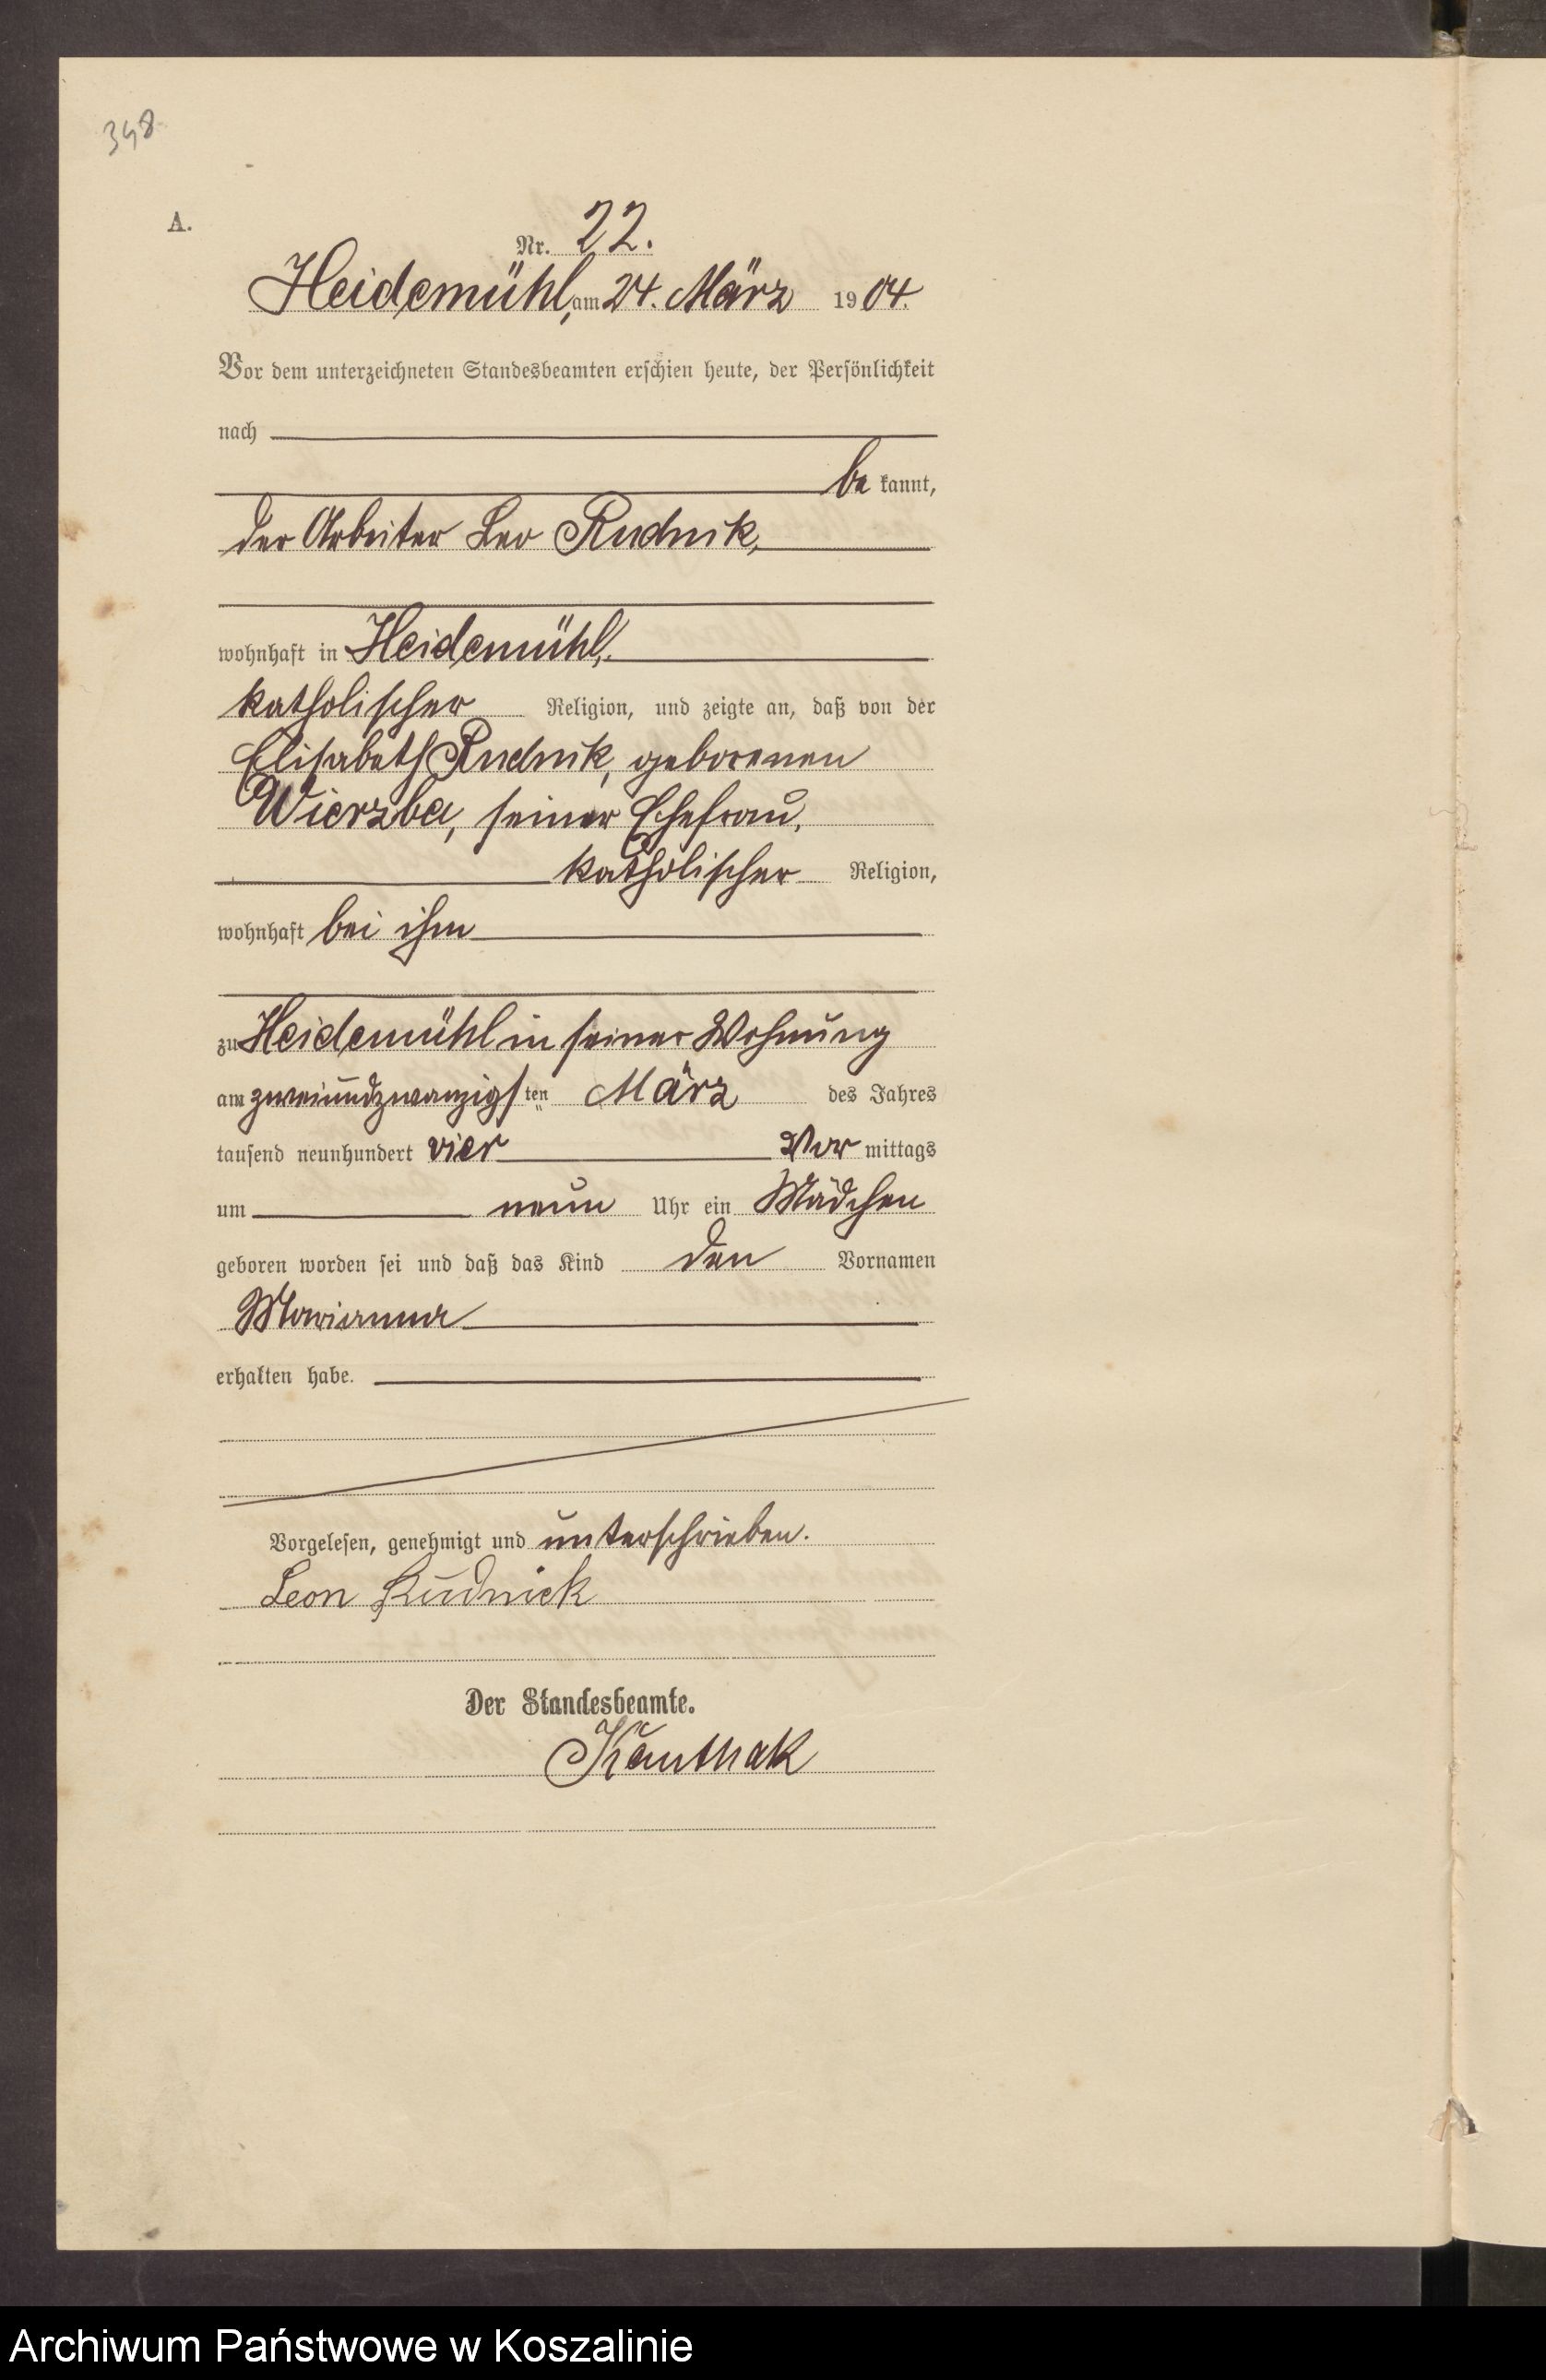 348
A.
Nr. 22.
Heidemühl, am 24. März 1904.
Vor dem unterzeichneten Standesbeamten erschien heute, der Persönlichkeit
nach
be kannt,
der Arbeiter Leo Rudnik,
wohnhaft in Heidemühl,
katholischer Religion, und zeigte an, daß von der
Elisabeth Rudnik, geborenen
Wierzba, seiner Ehefrau,
katholischer Religion,
wohnhaft bei ihm
zu Heidemühl in seiner Wohnung
am zweiundzwanzigsten März des Jahres
tausend neunhundert vier Vor mittags
um neun Uhr ein Mädchen
geboren worden sei und daß das Kind den Vornamen
Marianna
erhalten habe.
Vorgelesen, genehmigt und unterschrieben.
Leon Rudnick
Der Standesbeamte.
Archiwum Państwowe w Koszalinie